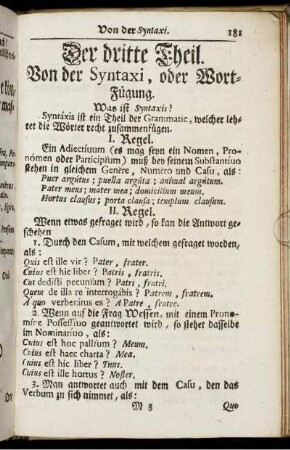 Von der Syntaxi. 181
Der dritte Theil.
Von der Syntaxi, oder Wort-
Fügung.
Was ist Syntaxis?
Syntáxis ist ein Theil der Grammatic, welcher leh-
ret die Wörter recht zusammenfügen.
I. Regel.
Ein Adiectivum (es mag seyn ein Nomen, Pro-
nómen oder Participium) muß bey seinem Substantivo
stehen in gleichem Genĕre, Numĕro und Casu, als:
Puer argútus; puella argúta; animal argútum.
Pater meus; mater mea; domicilium meum.
Hortus clausus; porta clausa; templum clausum.
II. Regel.
Wenn etwas gefraget wird, so kan die Antwort ge-
schehen
1. Durch den Casum, mit welchem gefraget worden,
als:
Quis est ille vir? Pater, frater.
Cuius est hic liber? Patris, fratris.
Cui dedisti pecuniam? Patri, fratri.
Quem de illa re interrogábis? Patrem, fratrem.
A quo verberátus es? A Patre, fratre.
2. Wenn auf die Frag Wessen, mit einem Prono-
mine Possessivo geantwortet wird, so stehet dasselbe
im Nominativo, als:
Cuius est hoc pallium? Meum.
Cuius est haec charta? Mea.
Cuius est hic liber? Tuus.
Cuius est ille hortus? Noster.
3. Man antwortet auch mit dem Casu, den das
Verbum zu sich nimmet, als:
M 3 Quo